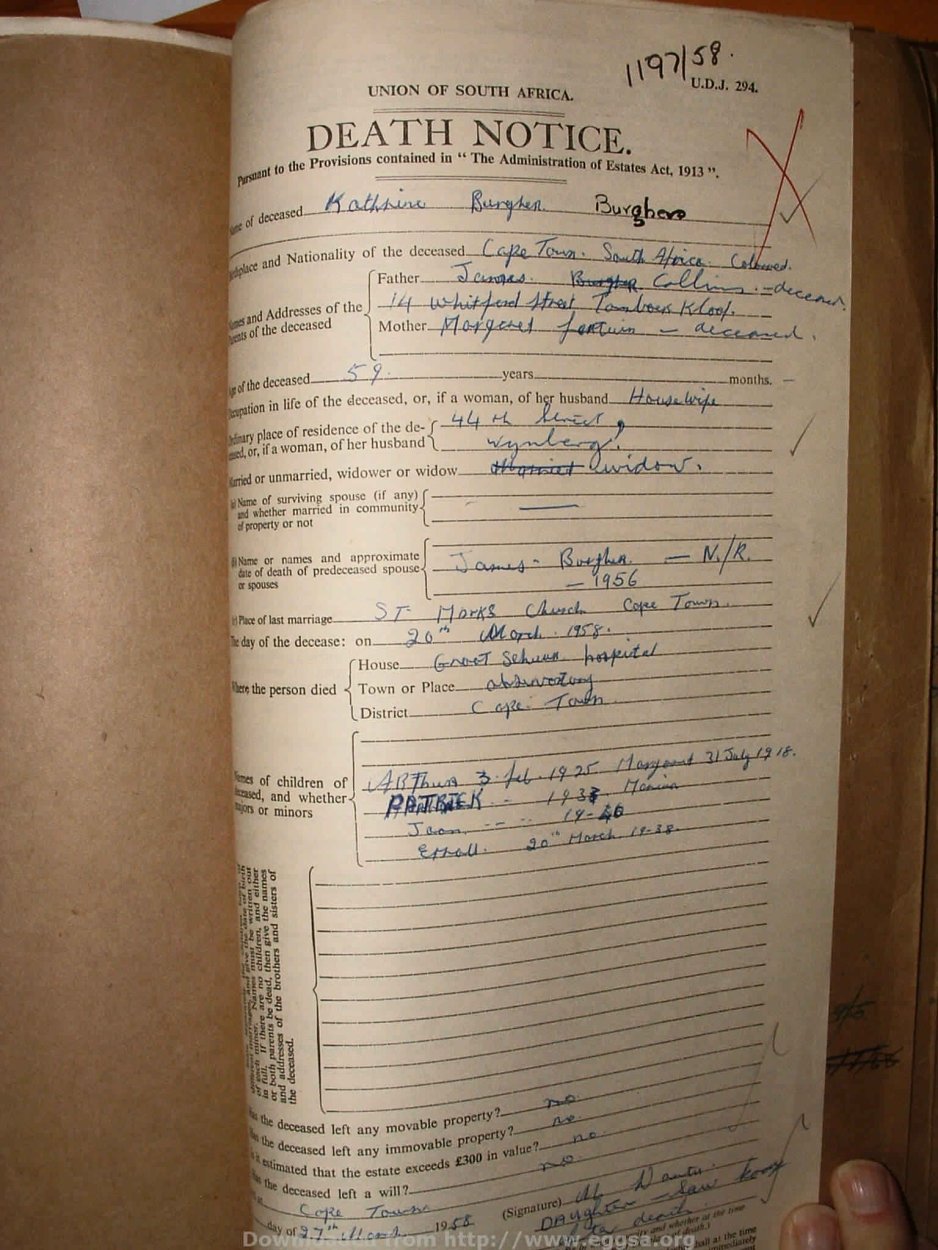 1197/58.
U.D.J. 294.
UNION OF SOUTH AFRICA.
DEATH NOTICE.
Pursuant to the Provisions contained in " The Administration of Estates Act, 1913 ".
of deceased Kathrine Burgher Burghers
and Nationality of the deceased Cape Town. South Africa. Coloured.
Father James. Collins. - deceased.
and Addresses of the
14 Whitford Street, Tamboers Kloof.
of the deceased
Mother Margaret - deceased.
of the deceased 59. years months. -
in life of the deceased, or, if a woman, of her husband Housewife
44 th Street,
place of residence of the de-
or, if a woman, of her husband
Wynberg.
or unmarried, widower or widow widow.
Name of surviving spouse (if any)
and whether married in community
of property or not
—
Name or names and approximate
date of death of predeceased spouse
or spouses
James - Burgher. — N/R.
— 1956
Place of last marriage ST Marks Church Cape Town.
The day of the decease: on 20th March. 1958.
House Groot Schuur hospital
the person died
Town or Place observatory
District Cape Town
of children of
and whether
or minors
Arthur 3. feb. 1925. Margaret 31 July 1918.
PATRICK
Jean
20th March 19-38
of each minor. Names must be written out
in full. If there are no children, and either
or both parents be dead, then give the names
and addresses of the brothers and sisters of
the deceased.
the deceased left any movable property? no.
the deceased left any immovable property? no.
estimated that the estate exceeds £300 in value? no.
the deceased left a will? no.
Cape Town
(Signature)
day of 27th March 1958
DAughter - Saw body
death.
Downloaded from http://www.eggsa.org